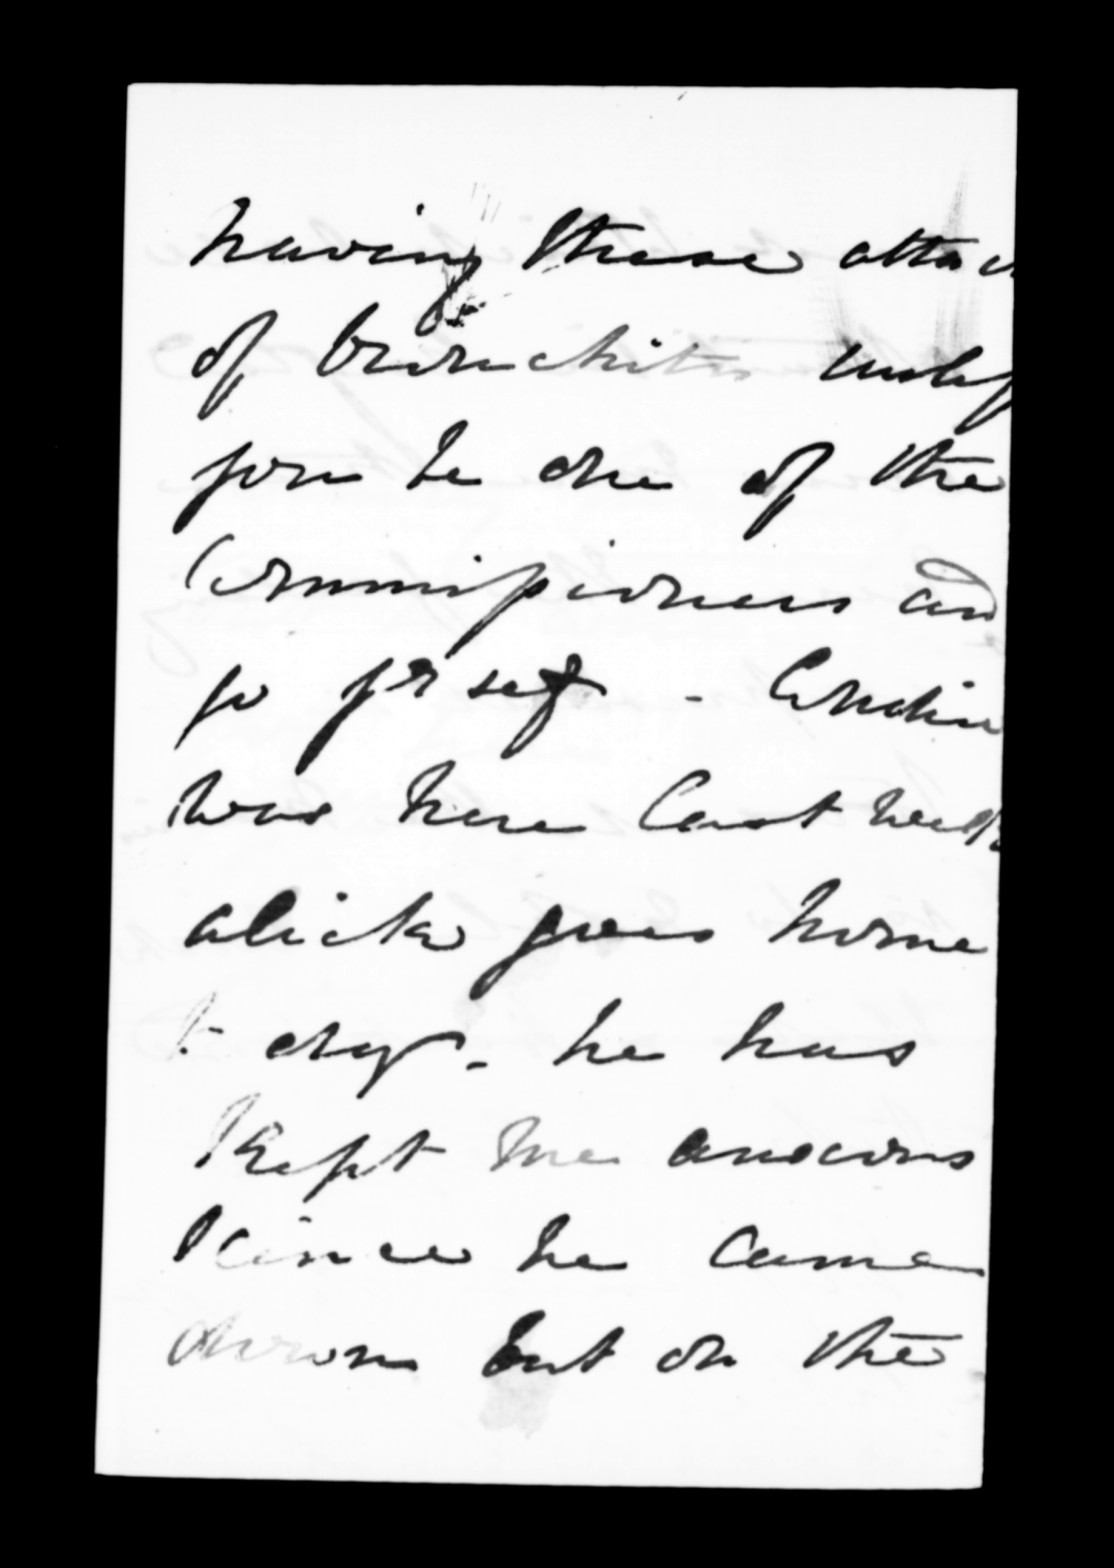 having these attac
of bronchitis
you be one of the
Commissioners and
go
was here last week
alick goes home
to day - he has
kept me anxious
since he came
down but on the